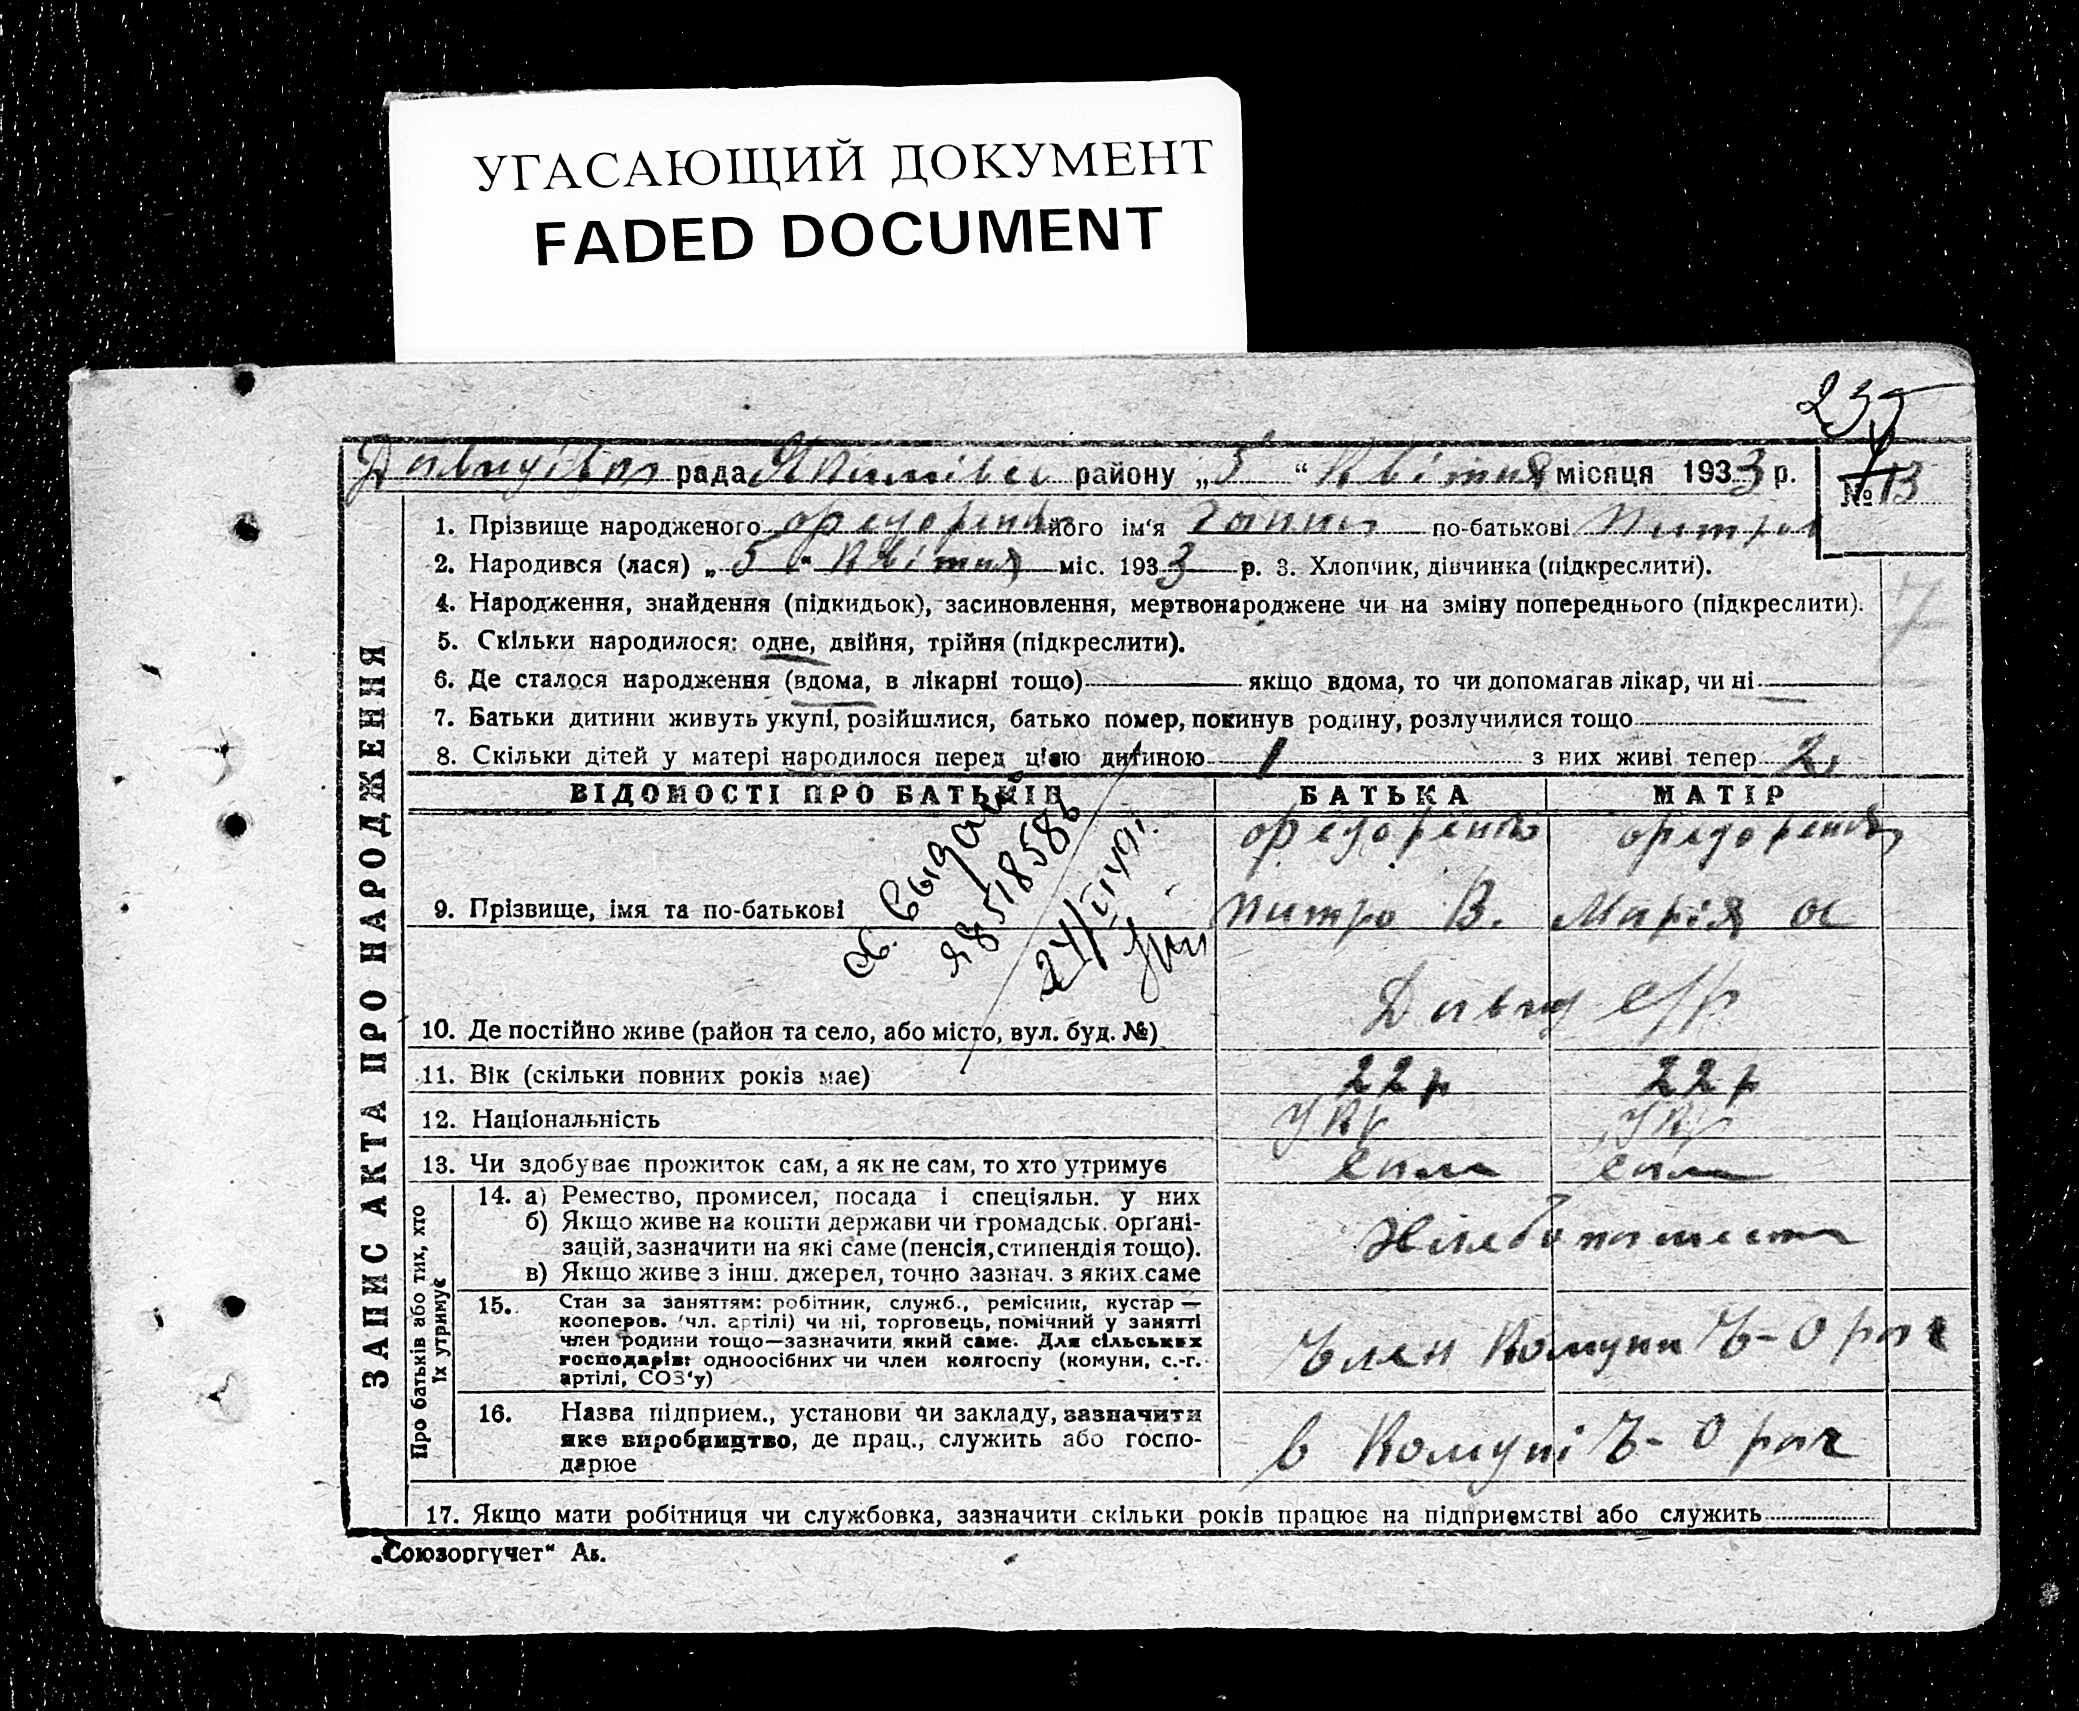 УГАСАЮЩИЙ ДОКУМЕНТ
FADED DOCUMENT
235
рада Якимівсь району „5“ Квітня місяця 1933 р.
№ 13
1. Прізвище народженого Федоренко його ім'я Ганна по-батькові Питров
2. Народився (лася) „5“ Квітня міс. 1933 р. 3. Хлопчик, дівчинка (підкреслити).
4. Народження, знайдення (підкидьок), засиновлення, мертвонароджене чи на зміну попереднього (підкреслити).
5. Скільки народилося: одне, двійня, трійня (підкреслити).
6. Де сталося народження (вдома, в лікарні тощо) якщо вдома, то чи допомагав лікар, чи ні
7. Батьки дитини живуть укупі, розійшлися, батько помер, покинув родину, розлучилися тощо
8. Скільки дітей у матері народилося перед цією дитиною 1 з них живі тепер 2
ЗАПИС АКТА ПРО НАРОДЖЕННЯ
ВІДОМОСТІ ПРО БАТЬКІВ БАТЬКА МАТІР
Федоренко Федоренко
9. Прізвище, імя та по-батькові Питро В. Марія
10. Де постійно живе (район та село, або місто, вул. буд. №) Давид
11. Вік (скільки повних років має) 22 р 22 р
12. Національність Укр Укр
13. Чи здобуває прожиток сам, а як не сам, то хто утримує сам сама
Про батьків або тих, хто їх утримує
14. а) Ремество, промисел, посада і спеціяльн. у них
б) Якщо живе на кошти держави чи громадськ. органі-
зацій, зазначити на які саме (пенсія, стипендія тощо).
в) Якщо живе з інш. джерел, точно зазнач. з яких саме
15. Стан за заняттям: робітник, служб., ремісник, кустар —
кооперов. (чл. артілі) чи ні, торговець, помічний у занятті
член родини тощо—зазначити який саме. Для сільських
господарів: одноосібних чи член колгоспу (комуни, с.-г.
артілі, СОЗ'у)
Член Комуни
16. Назва підприєм., установи чи закладу, зазначити
яке виробництво, де прац., служить або госпо-
дарює
в Комуні
17. Якщо мати робітниця чи службовка, зазначити скільки років працює на підприємстві або служить
„Союзоргучет“ Ак.